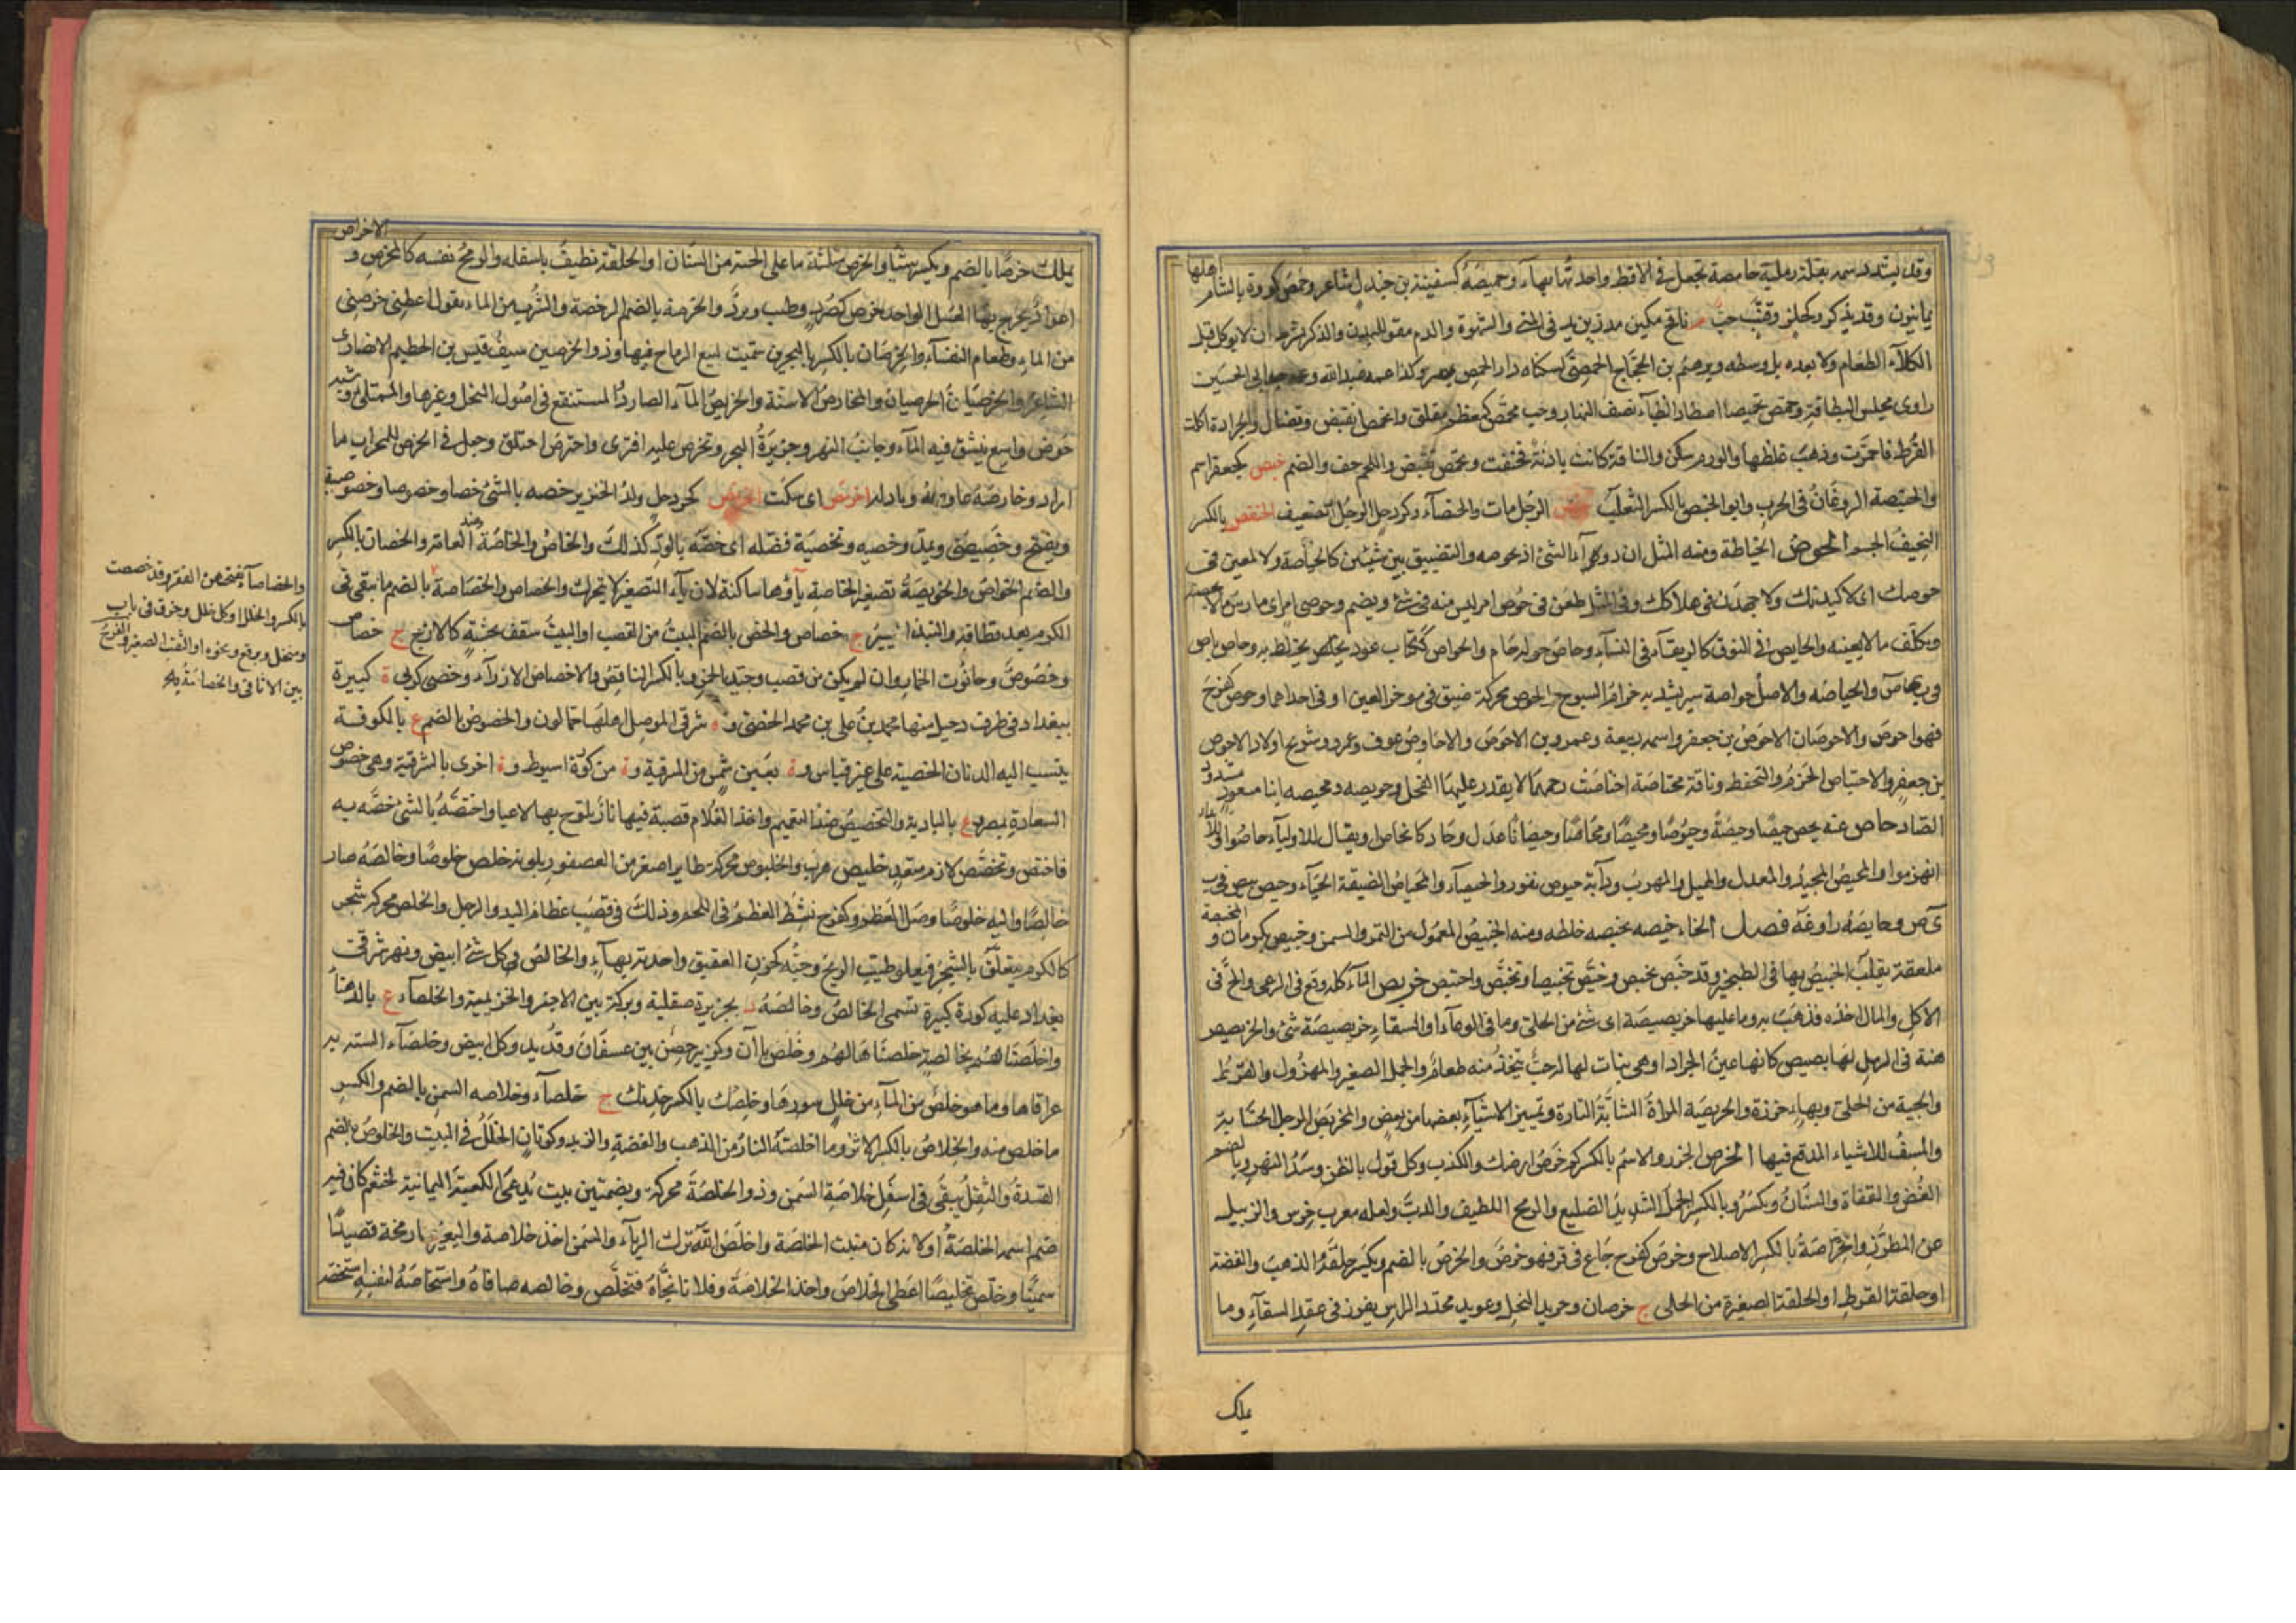 اهلها
وقد يشدد ميمه بقلة رملية حامضة تجعل في الاقط واحدتها بهآء وحميصة كسفينة بن جندل شاعر وحمص كورة بالشام
يمانيون وقد يذكر وكحلز وقنب حب نافخ ملين مدر يزيد في المني والشهوة والدم مقو للبدن والذكر بشرط ان لا يوكل قبل
الطعام ولا بعده بل وسطه وبرهيم بن الحجاج الحمصي لسكناه دار الحمص بمصر وكذا عمه عبدالله
راوي مجلس البطاقة وحمص تحميصا اصطاد الظبآء نصف النهار وحب محمص كمعظم مقلو وانحمص انقبض وتضأل والجرادة اكلت
القرظ فاحمرت وذهب غلظها والورم سكن والناقة كانت بادنة فنحفت وتحمص تقبض واللحم جف وانضم حبص كجعفر اسم
والحنبصة الروغان في الحرب وابو الحنبص بالكسر الثعلب الرجل مات والحنصآء وكجردحل الرجل الضعيف الحنفص بالكسر
النحيف الجسم الحوص الخياطة ومنه المثل ان دوآء الشئ ان تحوصه والتضييق بين شيئين كالحياصة ولاطعنن في
حوصك اى لاكيدنك ولاجهدن في هلاكك وفي المثل طعن في حوص امر ليس منه في شئ ويضم وحوصى امراى مارس ما لا يحسنه
وتكلف ما لا يعينه والحايص في النوق كالرتقآء في النسآء وحاص حوله حام والحواص ككتاب عود يخاط به وحاص باص
في ب ي ص والحياصة والاصل حواصة سير يشد به حزام السرج الحوص محركة ضيق في موخر العين او في احداهما وحوص كفرح
فهو احوص والاحوصان الاحوص بن جعفر واسمه ربيعة وعمرو بن الاحوص والاحاوص عوف وعمرو وشريح اولاد الاحوص
بن جعفر والاحتياص الحزم والتحفظ وناقة محتاصة احتاصت رحمها لا يقدر عليها الفحل وحويصه ومحيصه ابنا مسعود مشددتى
الصاد حاص عنه يحيص حيصا وحيصة وحيوصا ومحيصا ومحاصا وحيصانا عدل وحاد كانحاص او يقال للاوليآء حاصوا وللاعداء
انهزموا والمحيص المحيد والمعدل والميل والمهرب ودآبة حيوص نفور والحيصآء والمحياص الضيقة الحيآء وحيص بيص في ب
ي ص وحايصه راوغه فصل الخاء خبصه يخبصه خلطه ومنه الخبيص المعمول من التمر والسمن وخبيص بكرمان والمخبصة
ملعقة يقلب الخبيص بها في الطنجير وقد خبص يخبص وخبص تخبيصا وتخبص واختبص خربص المآء كله وقع في الرعى والح في
الاكل والمال اخذه فذهب به وما عليها خربصيصة اى شئ من الحلى وما في الوعآء او السقآء خربصيصة شئ والخربصيص
هنة في الرمل لها بصيص كانها عين الجراد او هي نبات لها له حب يتخذ منه طعام والجمل الصغير والمهزول والقرط
والحبة من الحلى وبهآء خرزة والخربصة المراة الشابة التارة وتمييز الاشيآء بعضها من بعض والمخربص الرجل الحسابة
والمسف للاشياء المدقع فيها الخرص الحزر والاسم بالكسر كم خرص ارضك والكذب وكل قول بالظن وسد النهر وبالضم
الغصن والقناة والسنان ويكسر وبالكسر الجمل الشديد الضليع والرمح اللطيف والدب ولعله معرب خرس والزبيل
عن المطرز والخراصة بالكسر الاصلاح وخرص كفرح جاع في قر فهو خرص والخرص بالضم ويكسر حلقة الذهب والفضة
او حلقة القرط او الحلقة الصغيرة من الحلى ج خرصان وجريد النخل وعويد محدد الراس يغرز في عقد السقآء وما
يملك
الاخراص
يملك خرصا بالضم ويكسر شيئا والخرص مثلثة ما على الجبة من السنان او الحلقة تطيف باسفله والرمح نفسه كالمخرص و
اعواد يخرج بها العسل الواحد خرص كصرد وطب وبرد والخرصة بالضم الرخصة والشرب من الماء يقول اعطنى خرصتى
من الماء وطعام النفسآء والخرصان بالكسر ة بالبحرين سميت لبيع الرماح فيها وذو الخرصين سيف قيس بن الخطيم الانصارى
الشاعر والخرصيان الحرصيان والمخارص الاسنة والخريص المآء البارد المستنقع في اصول النخل وغيرها والممتلئ وشبه
حوض واسع ينبثق فيه المآء وجانب النهر وجزيرة البحر وتخرص عليه افترى واخترص اختلق وجعل في الخرص للجراب ما
اراد وخارصه عاوضه وبادله اخرنص اى سكت الخرنوص كجردحل ولد الخنزير خصه بالشئ خصا وخصوصا وخصوصية
ويفتح وخصيصى ويمد وخصية وتخصة فضله اى خصه بالود كذلك والخاص والخاصة ضد العامة والخصان بالكسر
والضم الخواص والخويصة تصغير الخاصة يآؤها ساكنة لان يآء التصغير لا يتحرك والخصاص والخصاصة بالضم ما يبقى في
الكرم بعد قطافه والنبذ اليسير ج خصاص والخص بالضم البيت من القصب او البيت يسقف بخشبة كالازج ج خصاص
وخصوص وحانوت الخمار وان لم يكن من قصب وجيد الخمر وبالكسر الناقص والاخصاص الازرآء وخصى كربى ة كبيرة
ببغداد في طرف دجيل منها محمد بن على بن محمد الخصى و ة شرقى الموصل اهلها جمالون والخصوص بالضم ع بالكوفة
ينسب اليه الدنان الخصية على غير قياس و ة بعين شمس من الشرقية و ة من كورة اسيوط و ة اخرى بالشرقية وهي خصوص
السعادة بمصر و ع بالبادية والتخصيص ضد التعميم واخذ الغلام قصبة فيها نار يلوح بها لاعبا واختصه بالشئ خصه به
فاختص وتخصص لازم متعد خلبص هرب والخلبوص محركة طاير اصغر من العصفور بلونه خلص خلوصا وخالصة صار
خالصا واليه خلوصا وصل العظم وكفرح نشط العظم في اللحم وذلك في قصب عظام اليد والرجل والخلص محركة شجر
كالكرم يتعلق بالشجر فيعلو طيب الريح وحبه كخرز العقيق واحدته بهآء والخالص كل شئ ابيض ونهر شرقى
بغداد عليه كورة كبيرة تسمى الخالص وخالصة د بجزيرة صقلية وبركة بين الاجفر والخزيمية والخلصآء ع بالدهنآ
واخلصناهم بخالصة خلصناها لهم وخلص ع بآرة وكزبير حصن بين عسفان وقديد وكل ابيض وخلصآء الشنة
عراقاها وما هو خلص من المآء من خلل سيورها وخلصك بالكسر خدنك ج خلصآء وخلاصة السمن بالضم والكسر
ما خلص منه والخلاص بالكسر الاثر وما اخلصته النار من الذهب والفضة والزبد وكرمان الخلل في البيت والخلوص بالضم
القشدة والثفل يبقى في اسفل خلاصة السمن وذو الخلصة محركة وبضمتين بيت يدعى الكعبة اليمانية لخثعم كان فيه
صنم اسمه الخلصة او لانه كان منبت الخلصة واخلص لله ترك الريآء والسمن اخذ خلاصة والبعير صار مخه قصيدا
سمينا وخلص تخليصا اعطى الخلاص واخذ الخلاصة وفلانا نجاه فتخلص وخالصه صافاه واستخلصه لنفسه استخصه
والخصاصآء بفتحهن الفقر وقد خصصت
بالكسر والخلل او كل خلل وخرق في باب
ومنخل وبرقع ونحوه او الثقب الصغير والفرج
بين الاثافي